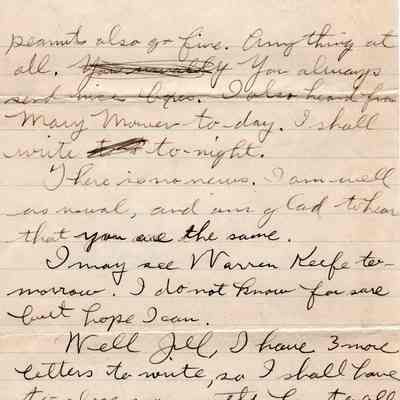 peanuts also go fine. Anything at
all. You usually You always
send nice boxes. I also heard from
Mary Mower to-day. I shall
write to-night.
There is no news. I am well
as usual, and am glad to hear
that you are the same.
I may see Warren Keefe to-
morrow. I do not know for sure
but hope I can.
Well Jill, I have 3 more
letters to write, so I shall have
to close